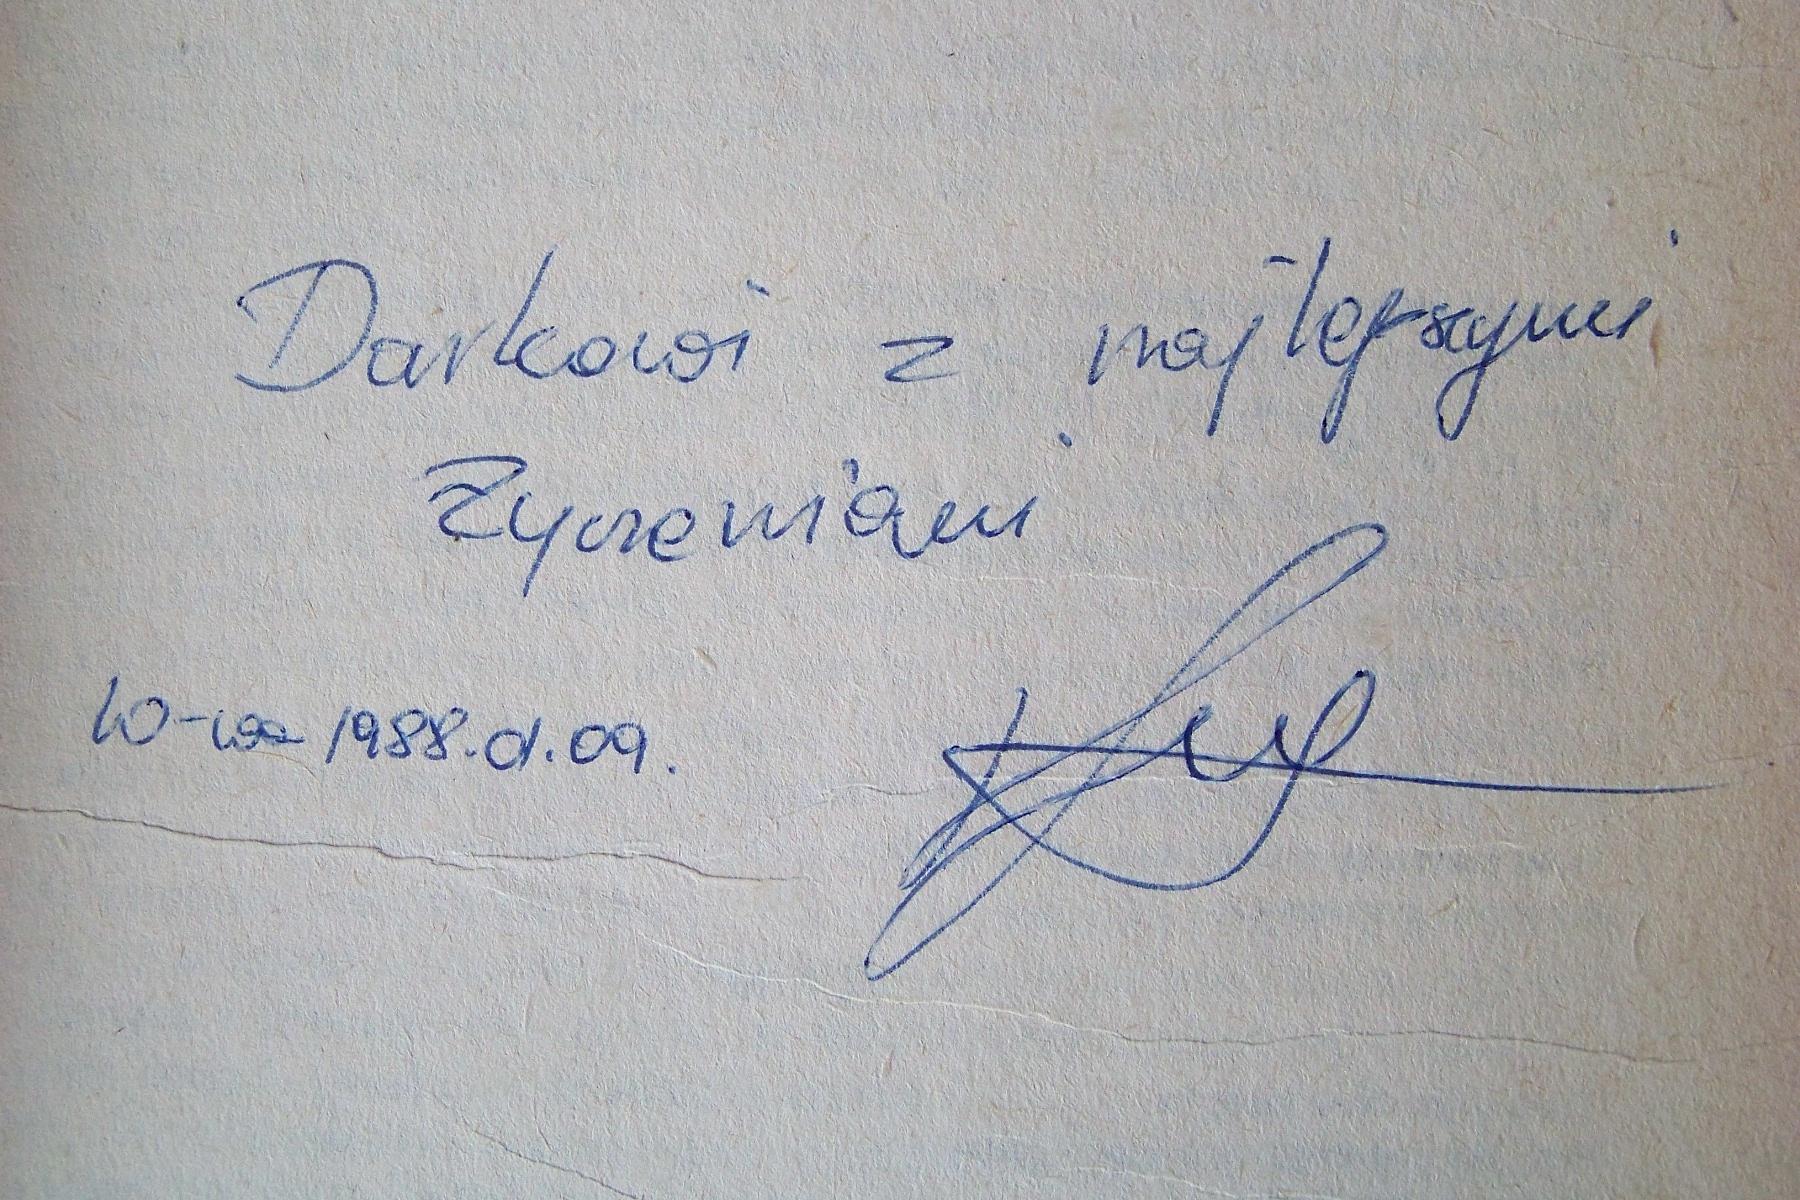 Darkowi z najlepszymi
Życzeniami
W-wa 1988.d.09.